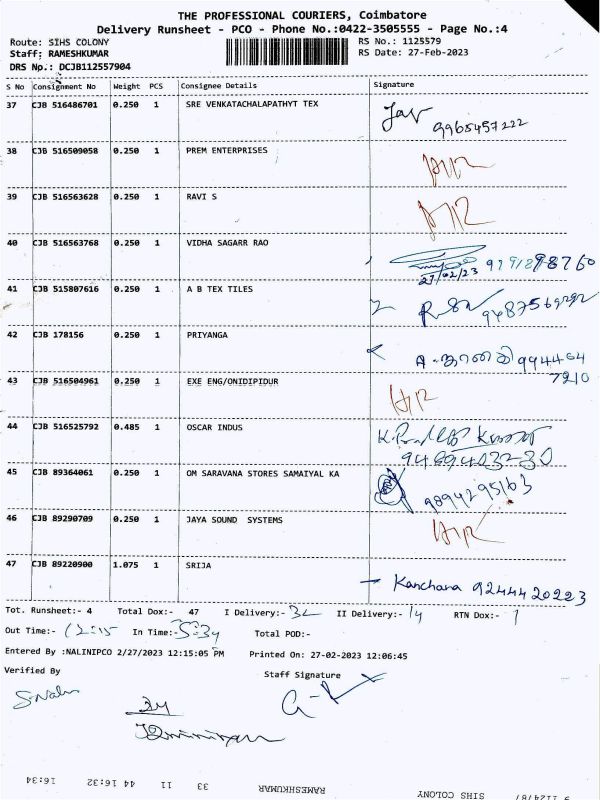 THE PROFESSIONAL COURIERS, Coimbatore
Delivery Runsheet - PCO - Phone No.:0422-3505555 - Page No.:4
Route: SIHS COLONY RS No.: 1125579
Staff: RAMESHKUMAR RS Date: 27-Feb-2023
DRS Np.: DCJB112557904
S No Consignment No Weight PCS Consignee Details Signature
37 CJB 516486701 0.250 1 SRE VENKATACHALAPATHYT TEX
9965457222
38 CJB 516509058 0.250 1 PREM ENTERPRISES
39 CJB 516563628 0.250 1 RAVI S
40 CJB 516563768 0.250 1 VIDHA SAGARR RAO
27/02/23
41 CJB 515807616 0.250 1 A B TEX TILES
42 CJB 178156 0.250 1 PRIYANGA
994464
7210
43 CJB 516504961 0.250 1 EXE ENG/ONIDIPIDUR
44 CJB 516525792 0.485 1 OSCAR INDUS
45 CJB 89364061 0.250 1 OM SARAVANA STORES SAMAIYAL KA
9894295163
46 CJB 89290709 0.250 1 JAYA SOUND SYSTEMS
47 CJB 89220900 1.075 1 SRIJA
Kanchana 9244420223
Tot. Runsheet:- 4 Total Dox:- 47 I Delivery:- 32 II Delivery:- 14 RTN Dox:- 1
Out Time:- 12:15 In Time:- 5:34 Total POD:-
Entered By :NALINIPCO 2/27/2023 12:15:05 PM Printed On: 27-02-2023 12:06:45
Verified By Staff Signature
16:34 16:32 44 11 33 RAMESHKUMAR SIHS COLONY